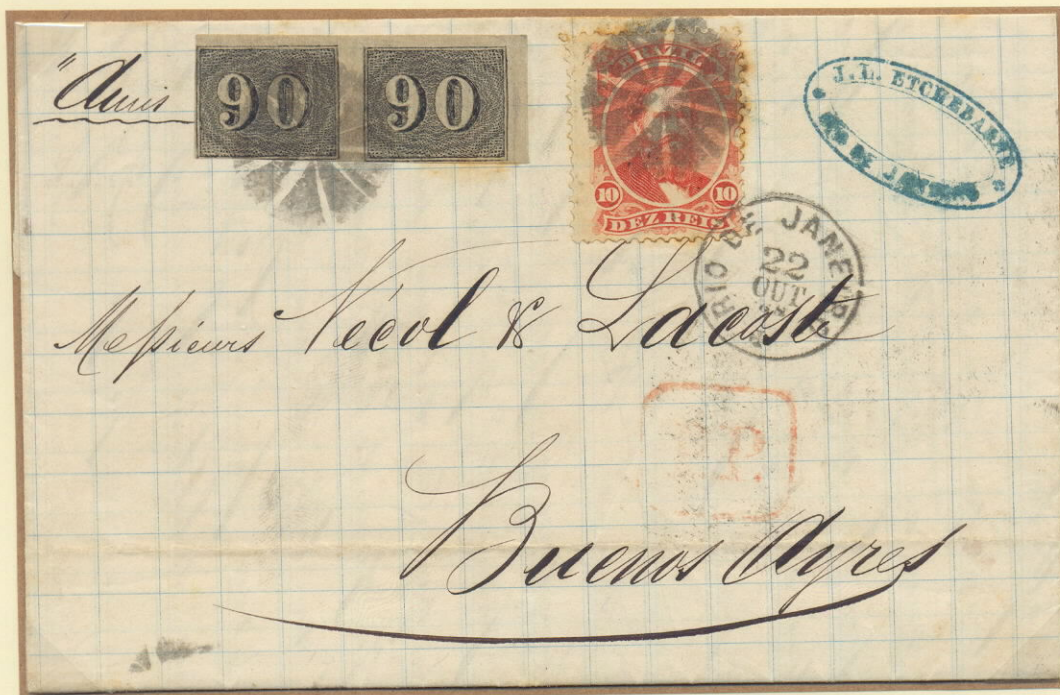 "Aunis
90 90
BRAZIL
10 10
DEZ REIS
J. L. ETCHEBARNE
RIO DE JANEIRO
RIO DE JANEIRO
22
OUT
Messieurs Vécol & Lacoste
P.
Buenos Ayres